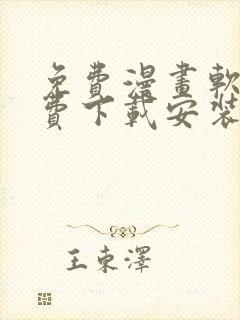 免費漫畫軟
費下載安裝
王東澤